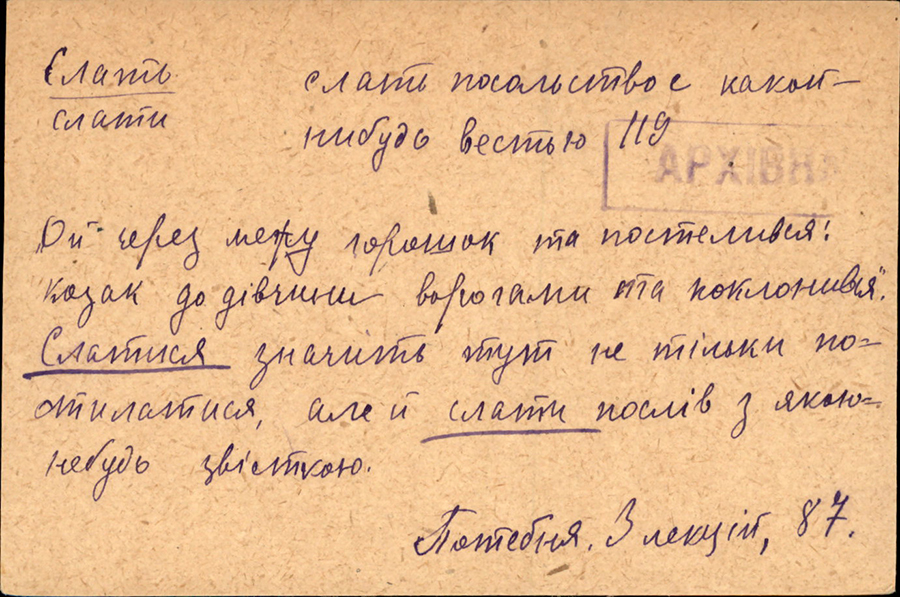 Слать слать посольство с какой-
слати нибудь вестью 119
АРХІВНА
„Ой через межу горошок та постелився:
козак до дівчини ворогами та поклонився".
Слатися значить тут не тільки по-
стилатися, але й слати послів з якою-
небудь звісткою.
Потебня. З лекцій, 87.